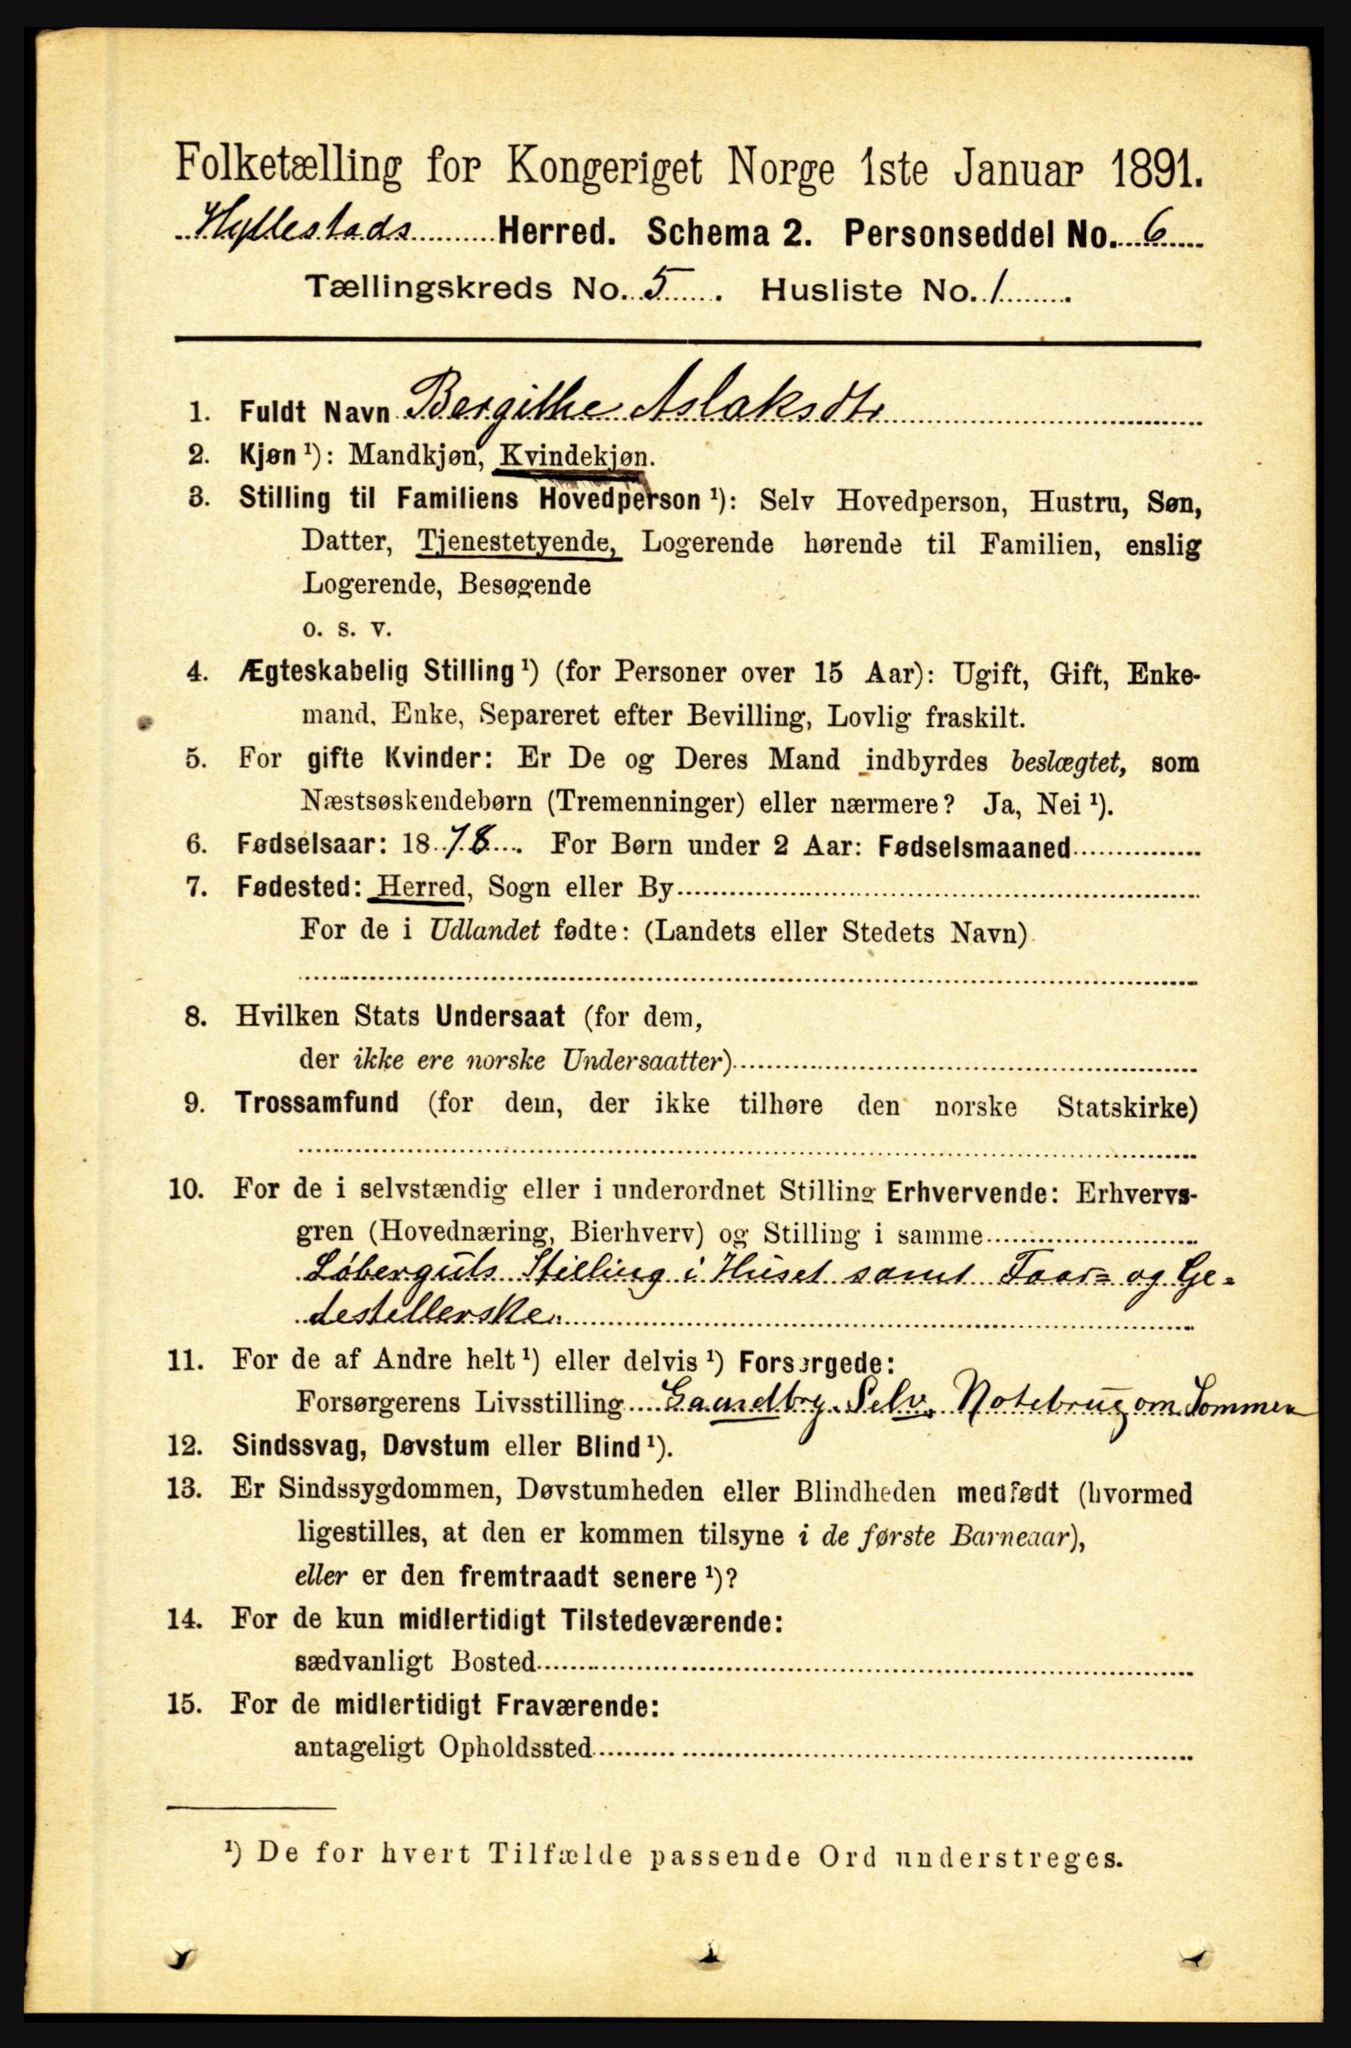 Folketælling for Kongeriget Norge 1ste Januar 1891.
Hyllestads Herred. Schema 2. Personseddel No. 6
Tællingskreds No. 5. Husliste No. 1.
1. Fuldt Navn Bergithe Aslaksdtr
2. Kjøn ¹): Mandkjøn, Kvindekjøn.
3. Stilling til Familiens Hovedperson ¹): Selv Hovedperson, Hustru, Søn,
Datter, Tjenestetyende, Logerende hørende til Familien, enslig
Logerende, Besøgende
o. s. v.
4. Ægteskabelig Stilling ¹) (for Personer over 15 Aar): Ugift, Gift, Enke-
mand, Enke, Separeret efter Bevilling, Lovlig fraskilt.
5. For gifte Kvinder: Er De og Deres Mand indbyrdes beslægtet, som
Næstsøskendebørn (Tremenninger) eller nærmere? Ja, Nei ¹).
6. Fødselsaar: 1878. For Børn under 2 Aar: Fødselsmaaned
7. Fødested: Herred, Sogn eller By
For de i Udlandet fødte: (Landets eller Stedets Navn)
8. Hvilken Stats Undersaat (for dem,
der ikke ere norske Undersaatter)
9. Trossamfund (for dem, der ikke tilhøre den norske Statskirke)
10. For de i selvstændig eller i underordnet Stilling Erhvervende: Erhvervs-
gren (Hovednæring, Bierhverv) og Stilling i samme
Løberguts Stilling i Huset samt Faar- og Ge-
destellerske.
11. For de af Andre helt ¹) eller delvis ¹) Forsørgede:
Forsørgerens Livsstilling Gaardbr. Selv. Notebrug om Sommer
12. Sindssvag, Døvstum eller Blind ¹).
13. Er Sindssygdommen, Døvstumheden eller Blindheden medfødt (hvormed
ligestilles, at den er kommen tilsyne i de første Barneaar),
eller er den fremtraadt senere ¹)?
14. For de kun midlertidigt Tilstedeværende:
sædvanligt Bosted
15. For de midlertidigt Fraværende:
antageligt Opholdssted
¹) De for hvert Tilfælde passende Ord understreges.